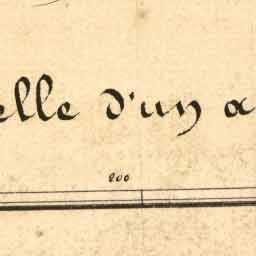 elle d'un a
200